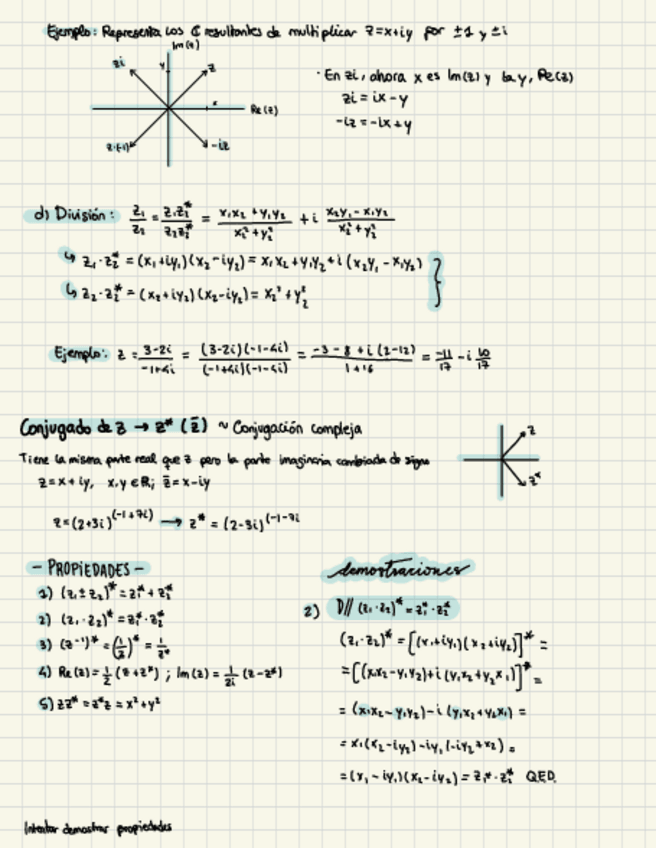 Ejemplo: Representa los ℂ resultantes de multiplicar z=x+iy por ±1 y ±i
Im(z)
zi
y
z
x
Re(z)
z·(-1)
-iz
· En zi, ahora x es Im(z) y la y, Re(z)
zi = ix-y
-iz = -ix+y
d) División: z₁/z₂ = z₁z₂*/z₂z₂* = (x₁x₂ + y₁y₂)/(x₂²+y₂²) + i (x₂y₁ - x₁y₂)/(x₂²+y₂²)
↳ z₁·z₂* = (x₁+iy₁)(x₂-iy₂) = x₁x₂+y₁y₂+i(x₂y₁-x₁y₂)
↳ z₂·z₂* = (x₂+iy₂)(x₂-iy₂) = x₂²+y₂²
}
Ejemplo: z = (3-2i)/(-1+4i) = (3-2i)(-1-4i)/(-1+4i)(-1-4i) = (-3-8+i(2-12))/(1+16) = -11/17 - i 10/17
Conjugado de z → z* (z̄) ~ Conjugación compleja
z
z*
Tiene la misma parte real que z pero la parte imaginaria cambiada de signo
z=x+iy, x,y∈ℝ; z̄=x-iy
z=(2+3i)^(-1+7i) → z* = (2-3i)^(-1-7i
- PROPIEDADES -
1) (z₁±z₂)* = z₁* + z₂*
2) (z₁·z₂)* = z₁*·z₂*
3) (z⁻¹)* = (1/z)* = 1/z*
4) Re(z)=1/2(z+z*) ; Im(z)=1/2i (z-z*)
5) zz* = z*z = x²+y²
demostraciones
2) D// (z₁·z₂)* = z₁*·z₂*
(z₁·z₂)* = [(x₁+iy₁)(x₂+iy₂)]* =
= [(x₁x₂-y₁y₂)+i(y₁x₂+y₂x₁)]* =
= (x₁x₂-y₁y₂)-i(y₁x₂+y₂x₁) =
= x₁(x₂-iy₂)-iy₁(-iy₂+x₂) =
= (x₁-iy₁)(x₂-iy₂) = z₁*·z₂* QED
Intentar demostrar propiedades